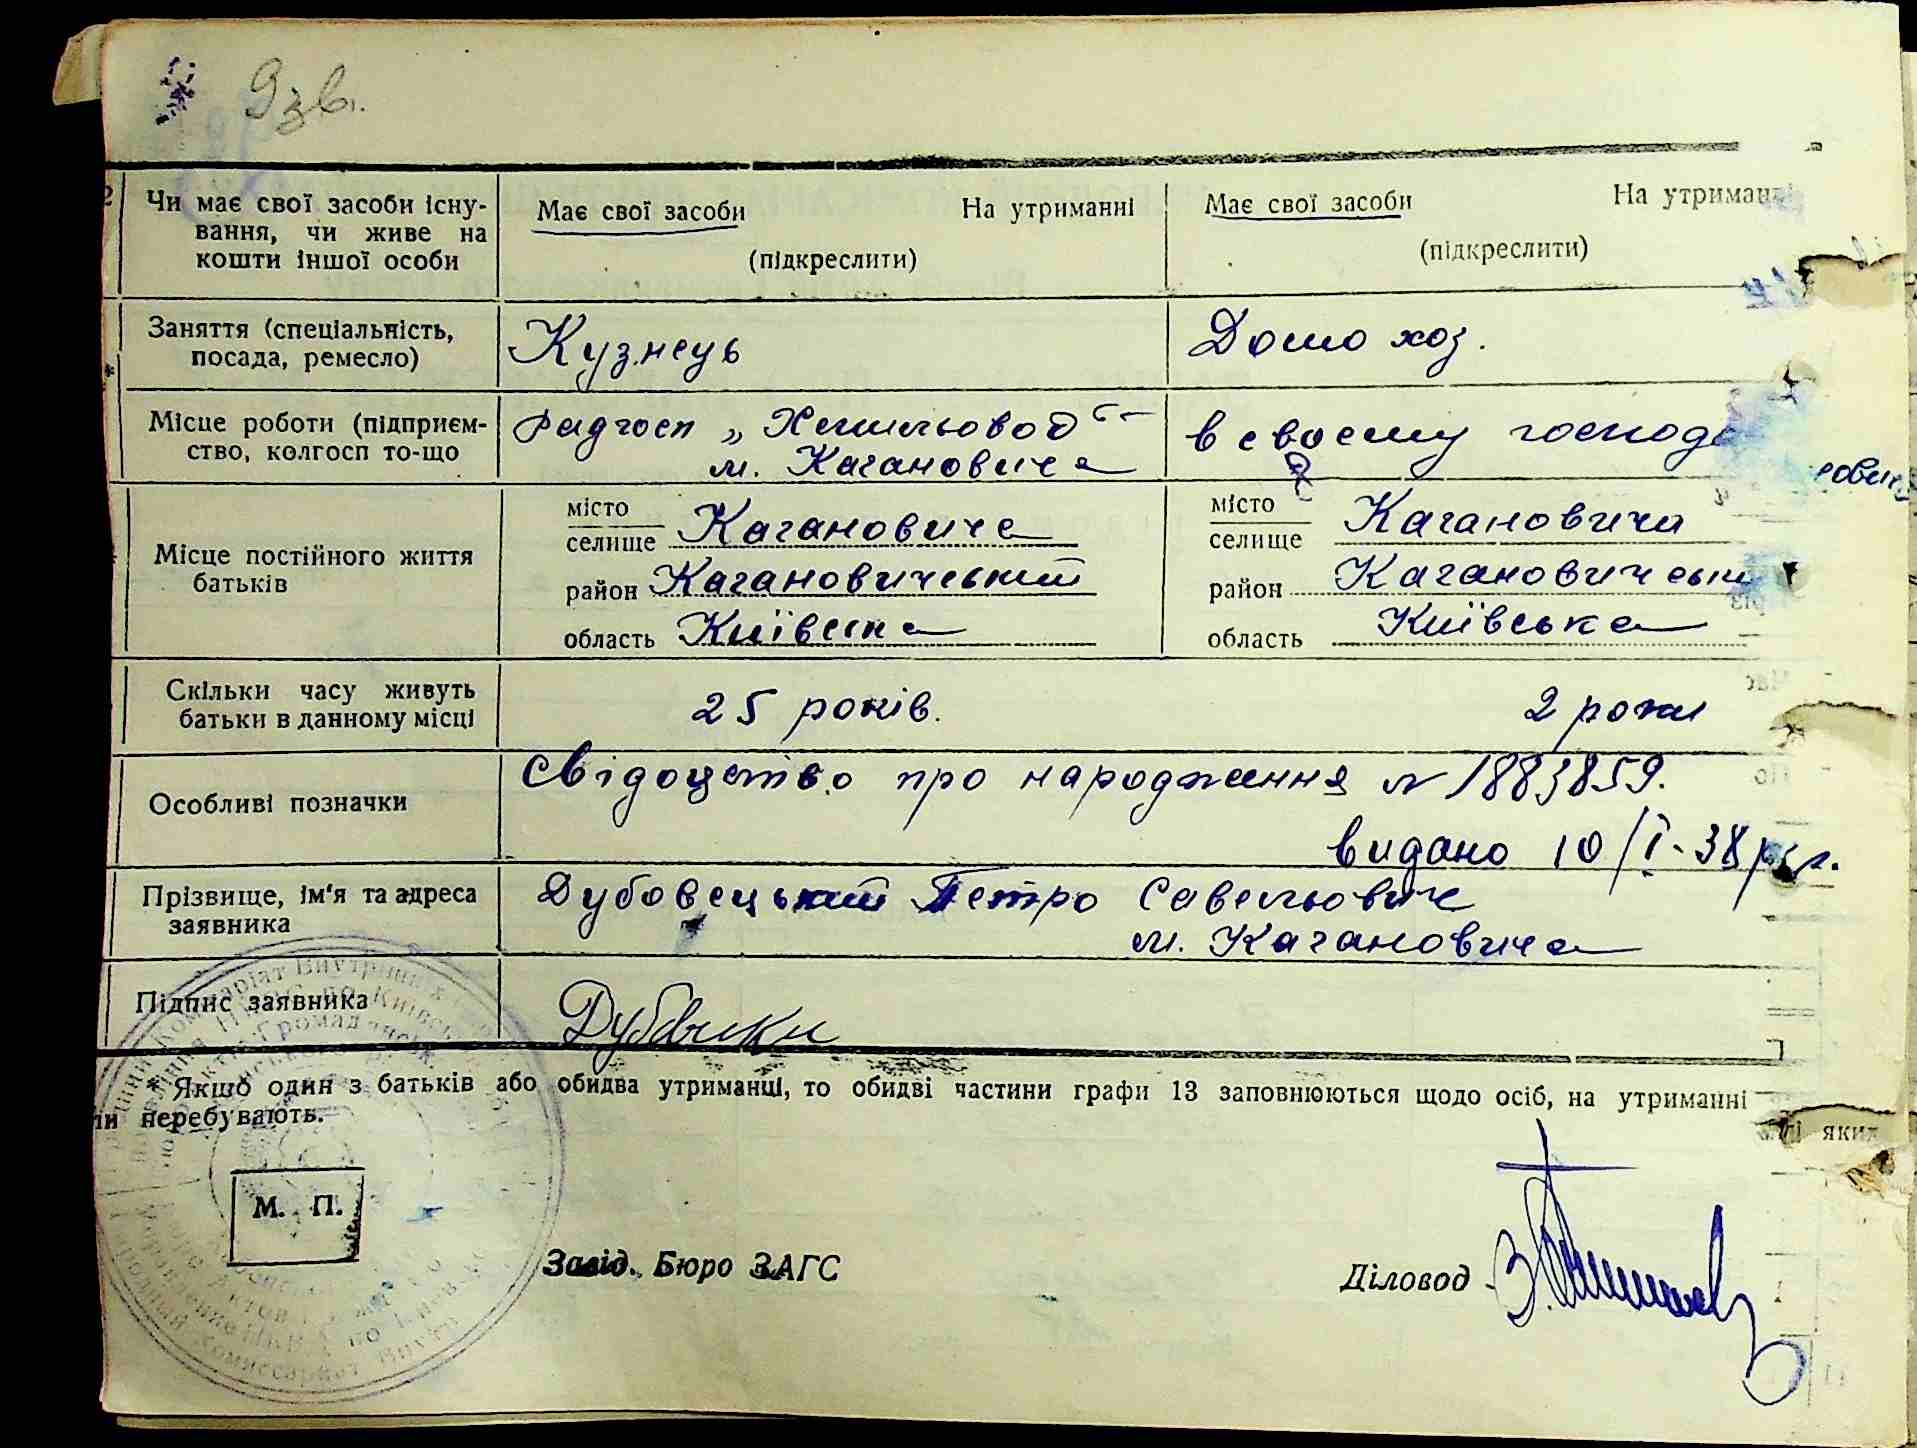 9 зв.
Чи має свої засоби існу-
вання, чи живе на
кошти іншої особи
Має свої засоби На утриманні
(підкреслити)
Має свої засоби На утриманні
(підкреслити)
Заняття (спеціальність,
посада, ремесло)
Кузнець
Домо хоз.
Місце роботи (підприєм-
ство, колгосп то-що
Радгосп „Хмильовод“
м. Кагановича
в своєму господ
Місце постійного життя
батьків
місто
селище Кагановича
район Кагановичський
область Київська
місто
селище Кагановича
район Кагановичськи
область Київська
Скільки часу живуть
батьки в данному місці
25 років.
2 роки
Особливі позначки
Свідоцтво про народження № 1883859.
видано 10/I-38 р.
Прізвище, ім'я та адреса
заявника
Дубовецький Петро Савельович
м. Кагановича
Підпис заявника
* Якшо один з батьків або обидва утриманці, то обидві частини графи 13 заповнюються щодо осіб, на утриманні
перебувають.
М. П.
Завід. Бюро ЗАГС
Діловод